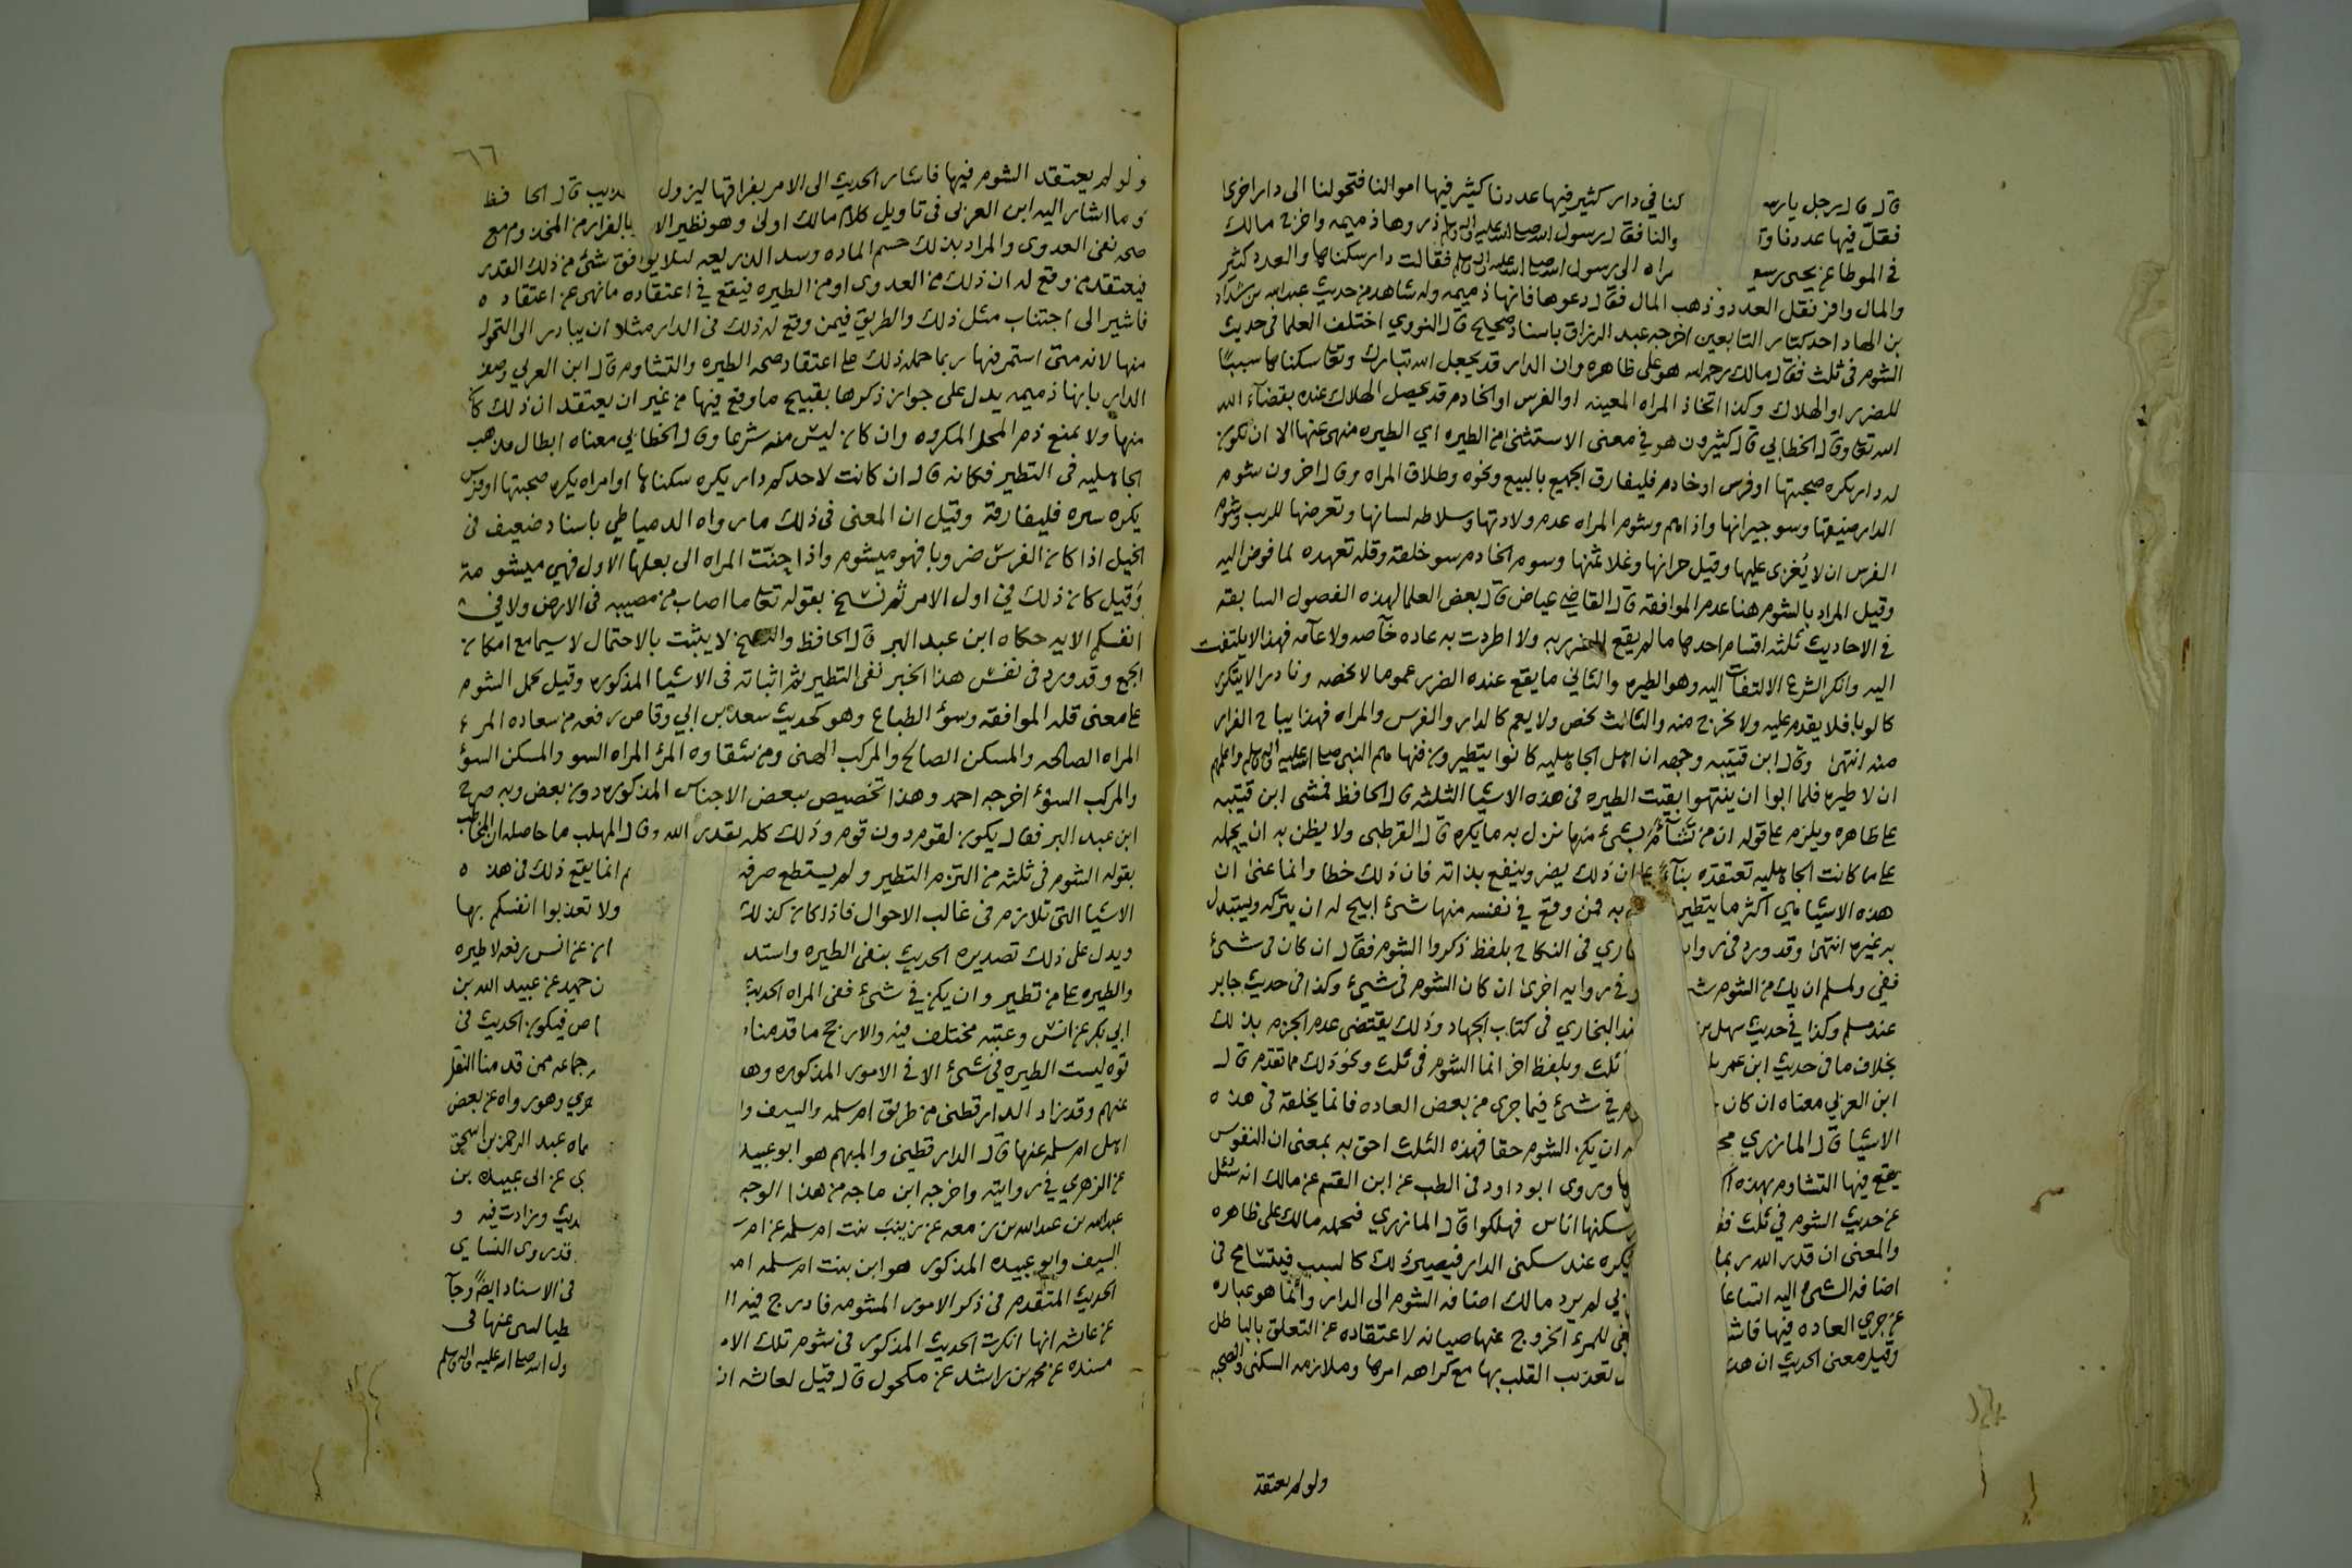 قال قال رجل يا رسو كنا في دار كثير فيها عددنا كثير فيها اموالنا فتحولنا الى دار اخرى
فقلّ فيها عددنا وا والنا فقال رسول الله صلى الله عليه واله وسلم ذروها ذميمه واخرج مالك
في الموطا عن يحيى بن سعيـ مراه الى رسول الله صلى الله عليه واله وسلم فقالت دار سكناها والعدد كثير
والمال وافر فقل العدد وذهب المال فقال دعوها فانها ذميمه وله شاهد من حديث عبد الله بن شداد
بن الهاد احد كبار التابعين اخرجه عبد الرزاق باسناد صحيح قال النووي اختلف العلما في حديث
الشوم في ثلث فقال مالك رحمه الله هو على ظاهره وان الدار قد يجعل الله تبارك وتعا سكناها سببًا
للضرر او الهلاك وكذا اتخاذ المراه المعينه او الفرس او الخادم قد يحصل الهلاك عنده بقضآء الله
الله تعا وقال الخطابي قال كثيرون هو في معنى الاستثنى من الطيره اي الطيره منهى عنها الا ان تكون
له دار يكره صحبتها او فرس او خادم فليفارق الجميع بالبيع ونحوه وطلاق المراه وقال اخرون شوم
الدار ضيقها وسو جيرانها واذاهم وشوم المراه عدم ولادتها وسلاطه لسانها وتعرضها للريب وشوم
الفرس ان لا يُغزى عليها وقيل حرانها وغلا ثمنها وسوم الخادم سو خلقه وقله تعهده لما فوض اليه
وقيل المراد بالشوم هنا عدم الموافقه قال القاضي عياض قال بعض العلما لهذه الفصول السابقه
في الاحاديث ثلثه اقسام احدها ما لم يقع الضرر به ولا اطردت به عاده خآصه ولا عآمه فهذا لا يلتفت
اليه وانكر الشرع الالتفات اليه وهو الطيره والثاني ما يقع عنده الضرر عموما لا يخصه ونادرا لا يتكرر
كالوبا فلا يقدم عليه ولا يخرج منه والثالث يخص ولا يعم كالدار والفرس والمراه فهذا يباح الفرار
منه انتهى وقال ابن قتيبه وجهه ان اهل الجاهليه كانوا يتطيرون فنهاهم النبي صلى الله عليه واله وسلم واعلمهم
ان لا طيره فلما ابوا ان ينتهوا بقيت الطيره في هذه الاشيا الثلثه قال الحافظ فمشى ابن قتيبه
على ظاهره ويلزم على قوله ان من تشآءم بشيء منها نزل به ما يكره قال القرطبي ولا يظن به ان يحمله
على ما كانت الجاهليه تعتقده بنآءً على ان ذلك يضر وينفع بذاته فان ذلك خطا وانما عنى ان
هذه الاشيا هي اكثر ما يتطير به فمن وقع في نفسه منها شيء ابيح له ان يتركه ويستبدل
به غيره انتهى وقد ورد في روايـ ـاري في النكاح بلفظ ذكروا الشوم فقال ان كان في شيء
ففي ولمسلم ان يك من الشوم شـ وفي روايه اخرى ان كان الشوم في شيء وكذا في حديث جابر
عند مسلم وكذا في حديث سهل بن ـند البخاري في كتاب الجهاد وذلك يقتضي عدم الجزم بذلك
بخلاف ما في حديث ابن عمر بلـ ثلث وبلفظ اخر انما الشوم في ثلث ونحو ذلك مما تقدم قال
ابن العربي معناه ان كان ـم في شيء فيما جرى من بعض العاده فانما يخلقه في هذه
الاشيا قال المازري مجـ ان يكن الشوم حقا فهذه الثلث احق به بمعنى ان النفوس
يقع فيها التشاوم بهذه اكـ ـا وروى ابو داود في الطب عن ابن القسم عن مالك انه سئل
عن حديث الشوم في ثلث فقـ سكنها اناس فهلكوا قال المازري فيحمله مالك على ظاهره
والمعنى ان قدر الله ربما يكره عند سكنى الدار فيصير ذلك كالسبب فيتسامح في
اضافه الشيء اليه اتساعا ـربي لم يرد مالك اضافه الشوم الى الدار وانما هو عباره
عن جري العاده فيها فاشـ ـغي للمرء الخروج عنها صيانه لاعتقاده عن التعلق بالباطل
وقيل معنى الحديث ان هذ تعذيب القلب بها مع كراهه امرها وملازمه السكنى والصحبه
ولو لم يعتقد
٦٦
ولو لم يعتقد الشوم فيها فاشار الحديث الى الامر بفراقها ليزول ـذيب قال الحافظ
وما اشار اليه ابن العربي في تاويل كلام مالك اولى وهو نظير الا بالفرار من المجذوم مع
صحه نفي العدوى والمراد بذلك حسم الماده وسد الذريعه لئلا يوافق شيء من ذلك القدر
فيعتقد من وقع له ان ذلك من العدوى او من الطيره فيقع في اعتقاده ما نهى عن اعتقاده
فاشير الى اجتناب مثل ذلك والطريق فيمن وقع له ذلك في الدار مثلا ان يبادر الى التحول
منها لانه متى استمر فيها ربما حمله ذلك على اعتقاد صحه الطيره والتشاوم قال ابن العربي وصف
الدار بانها ذميمه يدل على جواز ذكرها بقبيح ما وقع فيها من غير ان يعتقد ان ذلك كان
منها ولا يمنع ذم المحل المكروه وان كان ليس منه شرعا وقال الخطابي معناه ابطال مذهب
الجاهليه في التطير فكانه قال ان كانت لاحدكم دار يكره سكناها او امراه يكره صحبتها او فرس
يكره سيره فليفارقه وقيل ان المعنى في ذلك ما رواه الدمياطي باسناد ضعيف في
الخيل اذا كان الفرس ضروبا فهو ميشوم واذا حنت المراه الى بعلها الاول فهي ميشومة
وقيل كان ذلك في اول الامر ثم نسخ بقوله تعا ما اصاب من مصيبه في الارض ولا في
انفسكم الايه حكاه ابن عبد البر قال الحافظ والنسخ لا يثبت بالاحتمال لا سيما مع امكان
الجمع وقد ورد في نفس هذا الخبر نفي التطير ثم اثباته في الاشيا المذكوره وقيل يحمل الشوم
على معنى قله الموافقه وسؤ الطباع وهو كحديث سعد بن ابي وقاص رفعه من سعاده المرء
المراه الصالحه والمسكن الصالح والمركب الهني ومن شقاوه المرء المراه السو والمسكن السؤ
والمركب السؤ اخرجه احمد وهذا تخصيص ببعض الاجناس المذكوره دون بعض وبه صرح
ابن عبد البر فقال يكون لقوم دون قوم وذلك كله بقدر الله وقال المهلب ما حاصله ان المخاطب
بقوله الشوم في ثلثه من التزم التطير ولم يستطع صرفه م انما يقع ذلك في هذه
الاشيا التي تلازم في غالب الاحوال فاذا كان كذلك ولا تعذبوا انفسكم بها
ويدل على ذلك تصديره الحديث بنفي الطيره واستد ان عن انس رفعه لا طيره
والطيره على من تطير وان يكن في شيء ففي المراه الحديث ن حميد عن عبيد الله بن
ابي بكر عن انس وعتبه مختلف فيه والارجح ما قدمناه اص فيكون الحديث في
قوه ليست الطيره في شيء الا في الامور المذكوره وهـ جماعه ممن قدمنا النقل
عنهم وقد زاد الدارقطني من طريق ام سلمه والسيف وا ـري وهو رواه عن بعض
اهل ام سلمه عنها قال الدارقطني والمبهم هو ابو عبيد ماه عبد الرحمن بن اسحق
عن الزهري في روايته واخرجه ابن ماجه من هذا الوجه ـي عن ابي عبيده بن
عبد الله بن عبد الله بن زمعه عن زينب بنت ام سلمه عن ام ـديث وزادت فيه و
السيف وابو عبيده المذكور هو ابن بنت ام سلمه ام قد روى النساي
الحديث المتقدم في ذكر الامور المشومه فادرج فيه ا في الاسناد ايضًا وجآ
عن عائشه انها انكرت الحديث المذكور في شوم تلك الا ـطيالسي عنها في
مسنده عن محمد بن راشد عن مكحول قال قيل لعائشه ان ـول الله صلى الله عليه واله وسلم